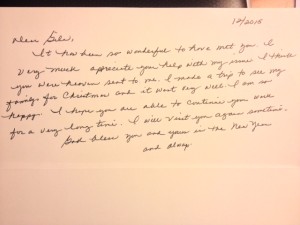 12/2015
Dear Gala,
It has been so wonderful to have met you. I
very much appreciate you help with my issue I think
you were heaven sent to me. I made a trip to see my
family for Christmas and it went very well. I am so
happy. I hope you are able to continue you work
for a very long time. I will visit you again sometime.
God bless you and yours in the New Year
and always.